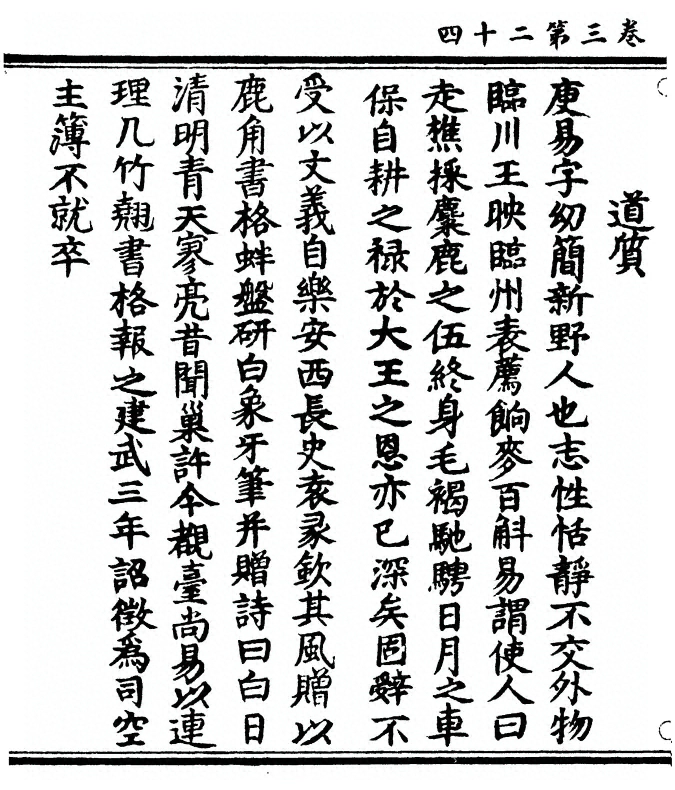 卷三第二十四
道質
庾易字幼簡新野人也志性恬靜不交外物
臨川王映臨州表薦餉麥百斛易謂使人曰
走樵採麋鹿之伍終身毛褐馳騁日月之車
保自耕之祿於大王之恩亦已深矣固辭不
受以文義自樂安西長史袁彖欽其風贈以
鹿角書格蚌盤研白象牙筆并贈詩曰白日
清明青天寥亮昔聞巢許今覩臺尚易以連
理几竹翹書格報之建武三年詔徵為司空
主簿不就卒